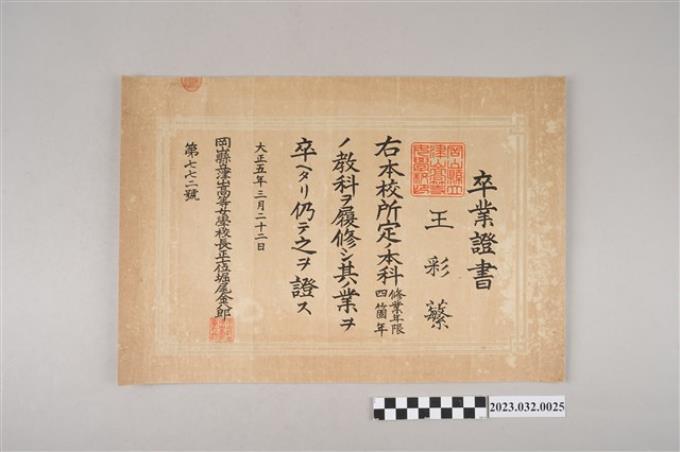 卒業證書
王彩蘩
右本校所定ノ本科修業年限四箇年
ノ教科ヲ履修シ其ノ業ヲ
卒ヘタリ仍テ之ヲ證ス
大正五年三月二十二日
岡山縣立津山高等女學校長正七位堀尾金八郎
第七七二號
2023.032.0025